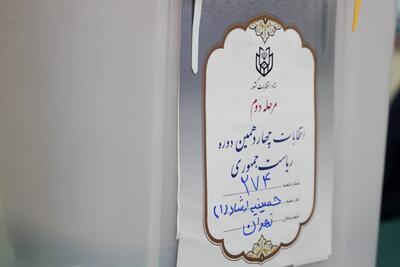 ستاد انتخابات کشور
مرحله دوم
انتخابات چهاردهمین دوره
ریاست جمهوری
شماره شعبه ۲۷۴
نام شعبه حسینیه ارشاد (۱)
شهرستان تهران